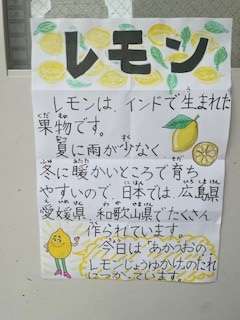 レモン
レモンは、インドで生まれた
果物です。
夏に雨が少なく
冬に暖かいところで育ち
やすいので、日本では、広島県
愛媛県、和歌山県でたくさん
作られています。
今日は「あかうおの
レモンしょうゆかけ」のたれ
につかっています。